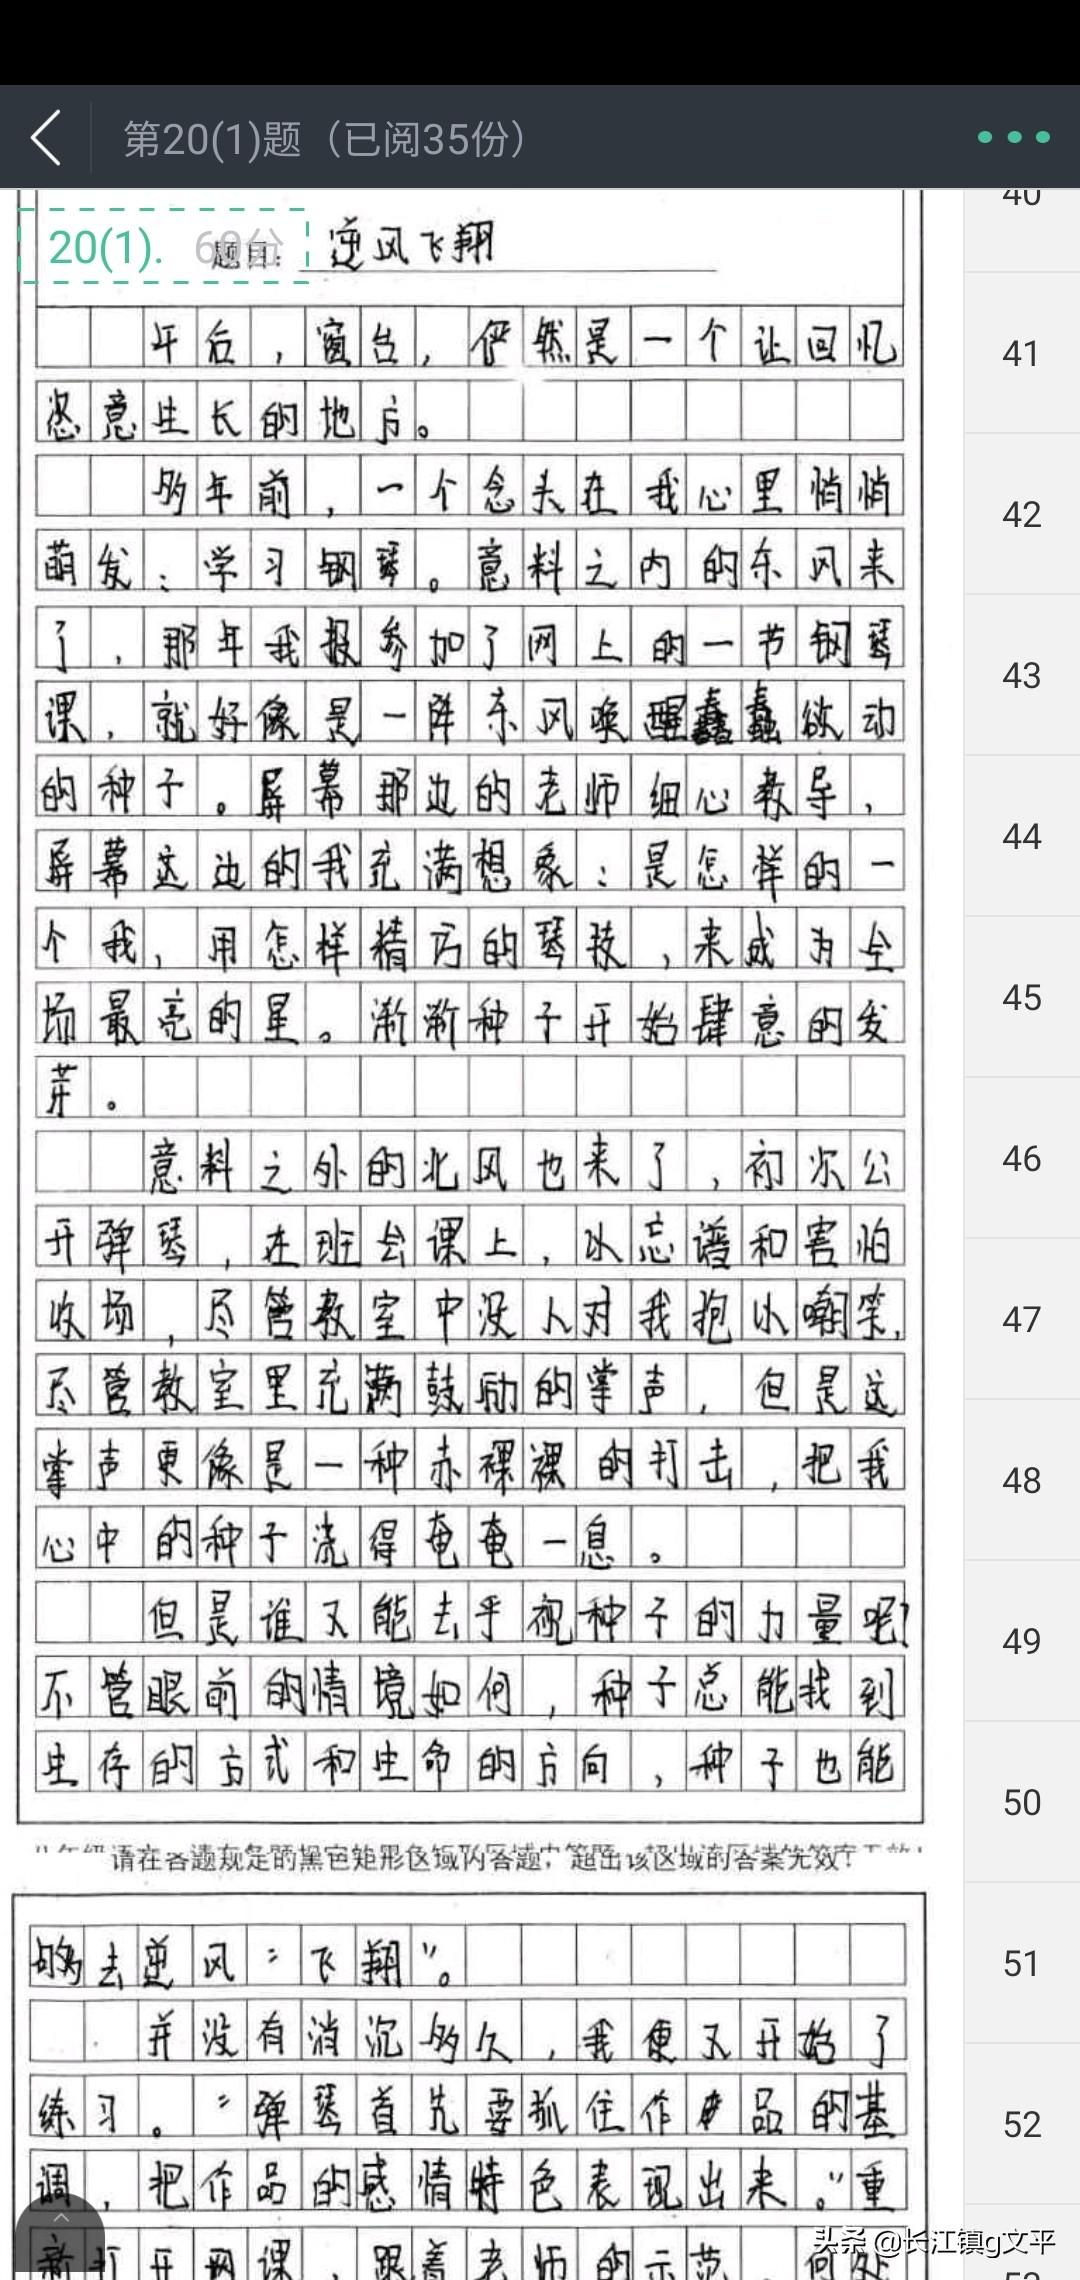 第20(1)题（已阅35份）
40
20(1). 60分
题目: 逆风飞翔
午后，窗台，俨然是一个让回忆
恣意生长的地方。
多年前，一个念头在我心里悄悄
萌发：学习钢琴。意料之内的东风来
了，那年我报参加了网上的一节钢琴
课，就好像是一阵东风唤醒蠢蠢欲动
的种子。屏幕那边的老师细心教导，
屏幕这边的我充满想象：是怎样的一
个我，用怎样精巧的琴技，来成为全
场最亮的星。渐渐种子开始肆意的发
芽。
意料之外的北风也来了，初次公
开弹琴，在班会课上，以忘谱和害怕
收场，尽管教室中没人对我抱以嘲笑，
尽管教室里充满鼓励的掌声，但是这
掌声更像是一种赤裸裸的打击，把我
心中的种子浇得奄奄一息。
但是谁又能去乎视种子的力量呢？
不管眼前的情境如何，种子总能找到
生存的方式和生命的方向，种子也能
请在各题规定的黑色矩形区域内答题，超出该区域的答案无效！
够去逆风“飞翔”。
并没有消沉多久，我便又开始了
练习。“弹琴首先要抓住作品的基
调，把作品的感情特色表现出来。”重
新打开网课，跟着老师的示范，何处
41
42
43
44
45
46
47
48
49
50
51
52
53
头条 @长江镇g文平